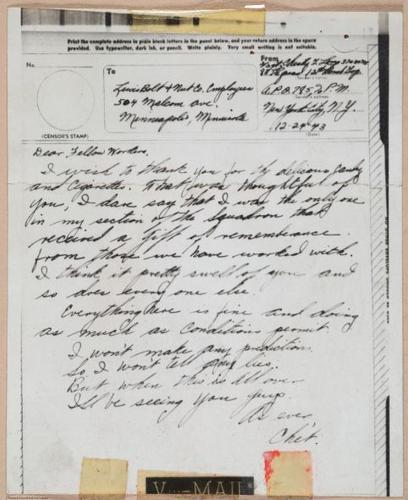 Print the complete address in plain block letters in the panel below, and your return address in the space
provided. Use typewriter, dark ink, or pencil. Write plainly. Very small writing is not suitable.
No.
(CENSOR'S STAMP)
To
Lewis Bolt & Nut Co. Employees
504 Malcom Ave.
Minneapolis, Minnesota
From
A.P.O. 785, P.M.
New York City, N.Y.
12-24-43
Dear Fellow Workers,
I wish to thank you for the delicious candy
and Cigarettes. That was thoughtful of
you, I dare say that I was the only one
in my section of the Squadron that
received a gift of remembrance
from those we have worked with.
I think it pretty swell of you and
so does every one else.
Everything here is fine and doing
as much as conditions permit
I won't make any predictions
So I won't tell any lies.
But when this is all over
I'll be seeing you
As ever
Chet.
V-MAIL